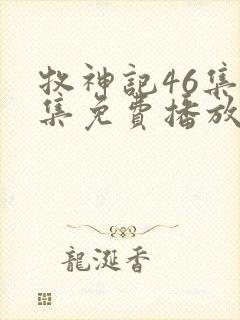 牧神記46集
集免費播放
龍涎香